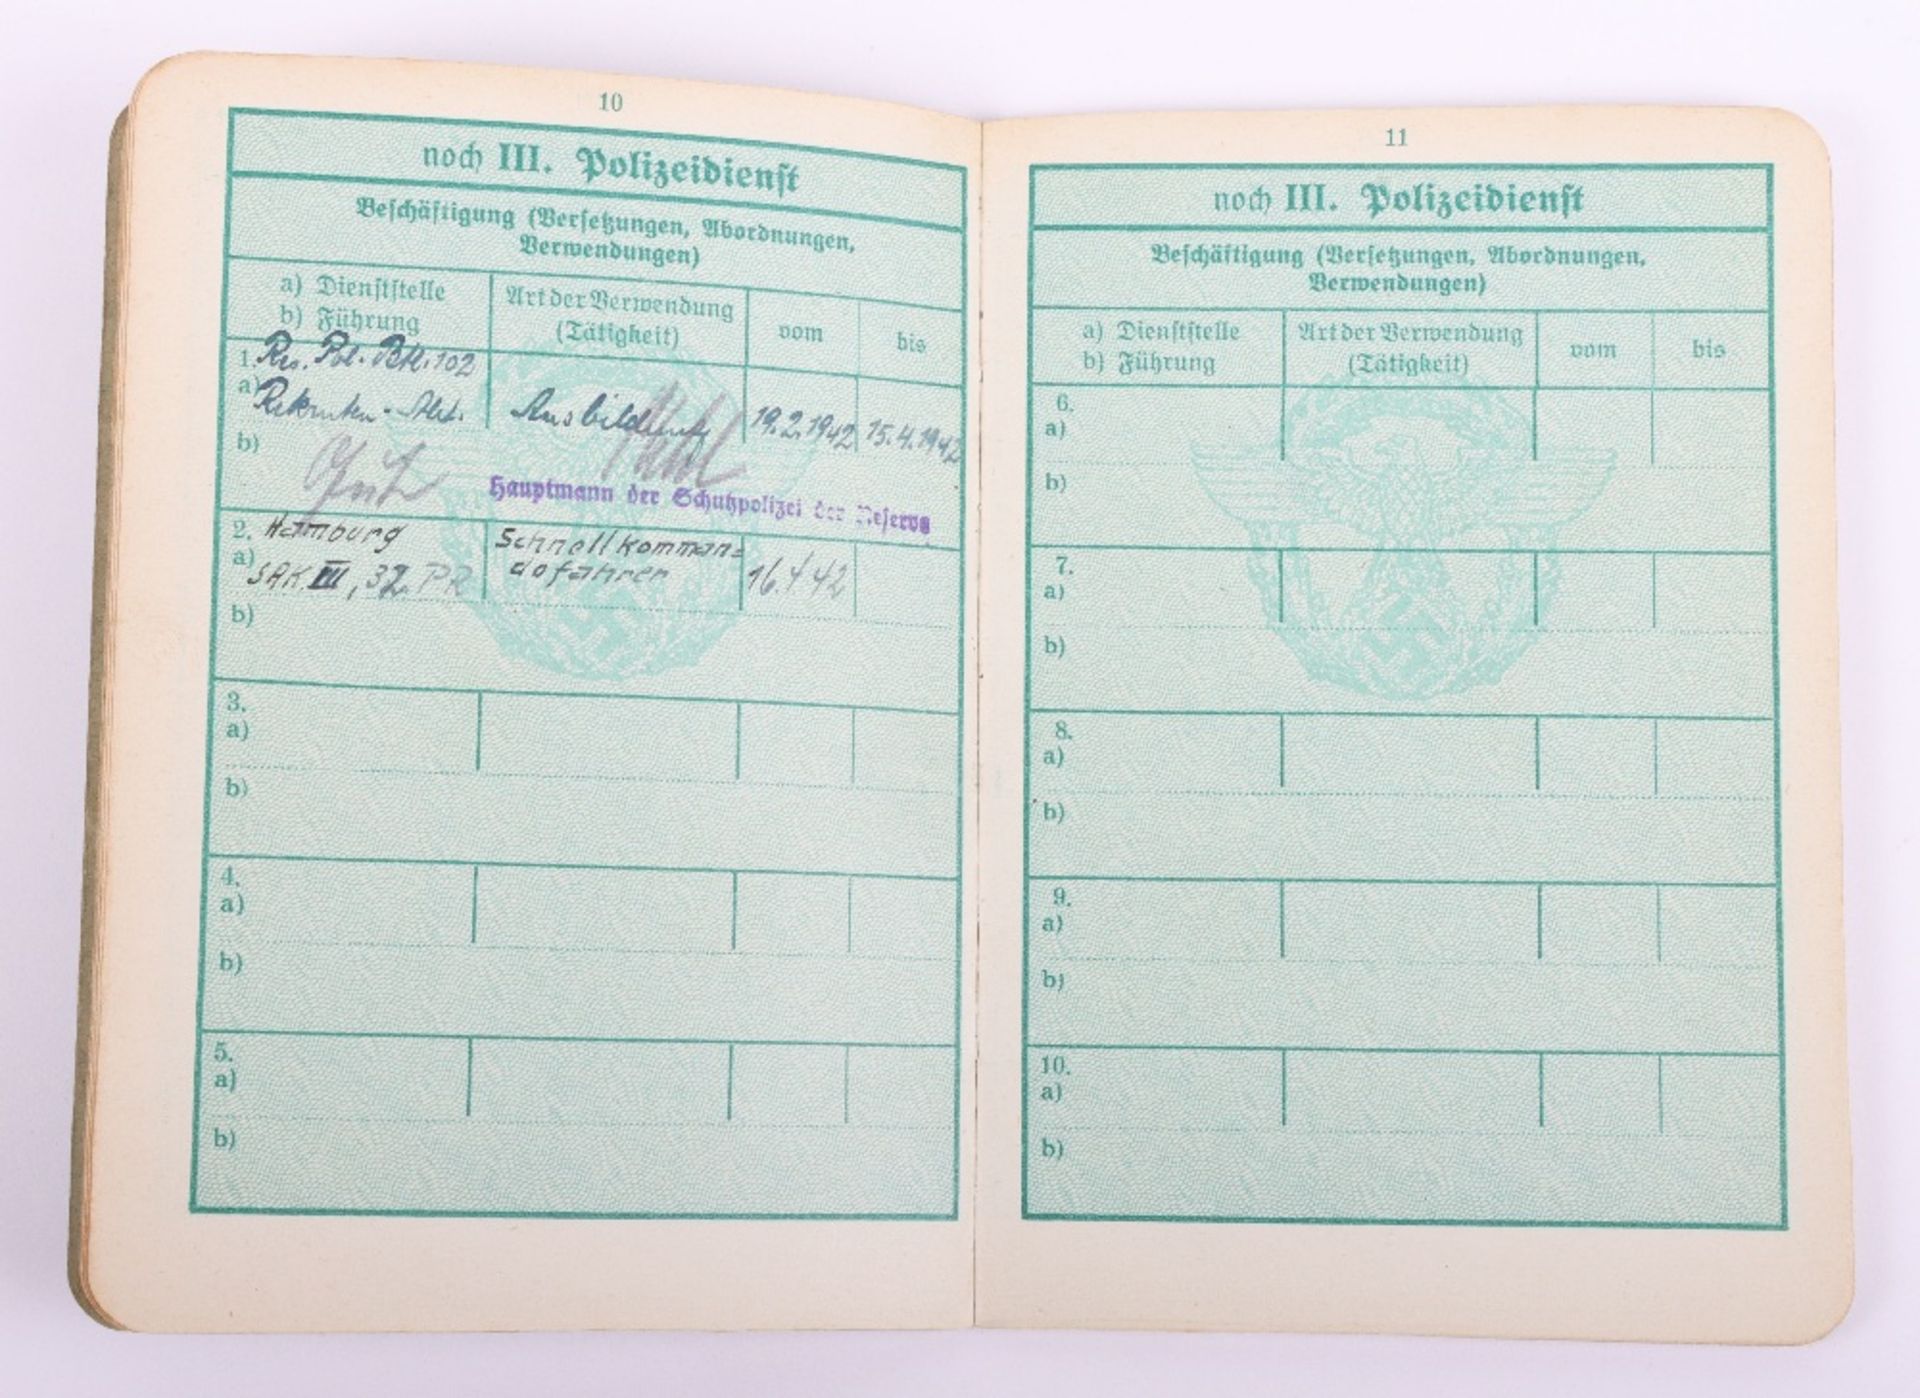 10
noch III. Polizeidienst
Beschäftigung (Versetzungen, Abordnungen,
Verwendungen)
a) Dienststelle
b) Führung
Art der Verwendung
(Tätigkeit)
vom
bis
1. Res. Pol. Btl. 102
a) Rekruten-Abt.
Ausbildung
19.2.1942
15.4.1942
b) Gut
Hauptmann der Schutzpolizei der Reserve
2. Hamburg
a) SAK. III, 32. PR
Schnellkomman=
dofahrer
16.4.42
b)
3.
a)
b)
4.
a)
b)
5.
a)
b)
11
noch III. Polizeidienst
Beschäftigung (Versetzungen, Abordnungen,
Verwendungen)
a) Dienststelle
b) Führung
Art der Verwendung
(Tätigkeit)
vom
bis
6.
a)
b)
7.
a)
b)
8.
a)
b)
9.
a)
b)
10.
a)
b)